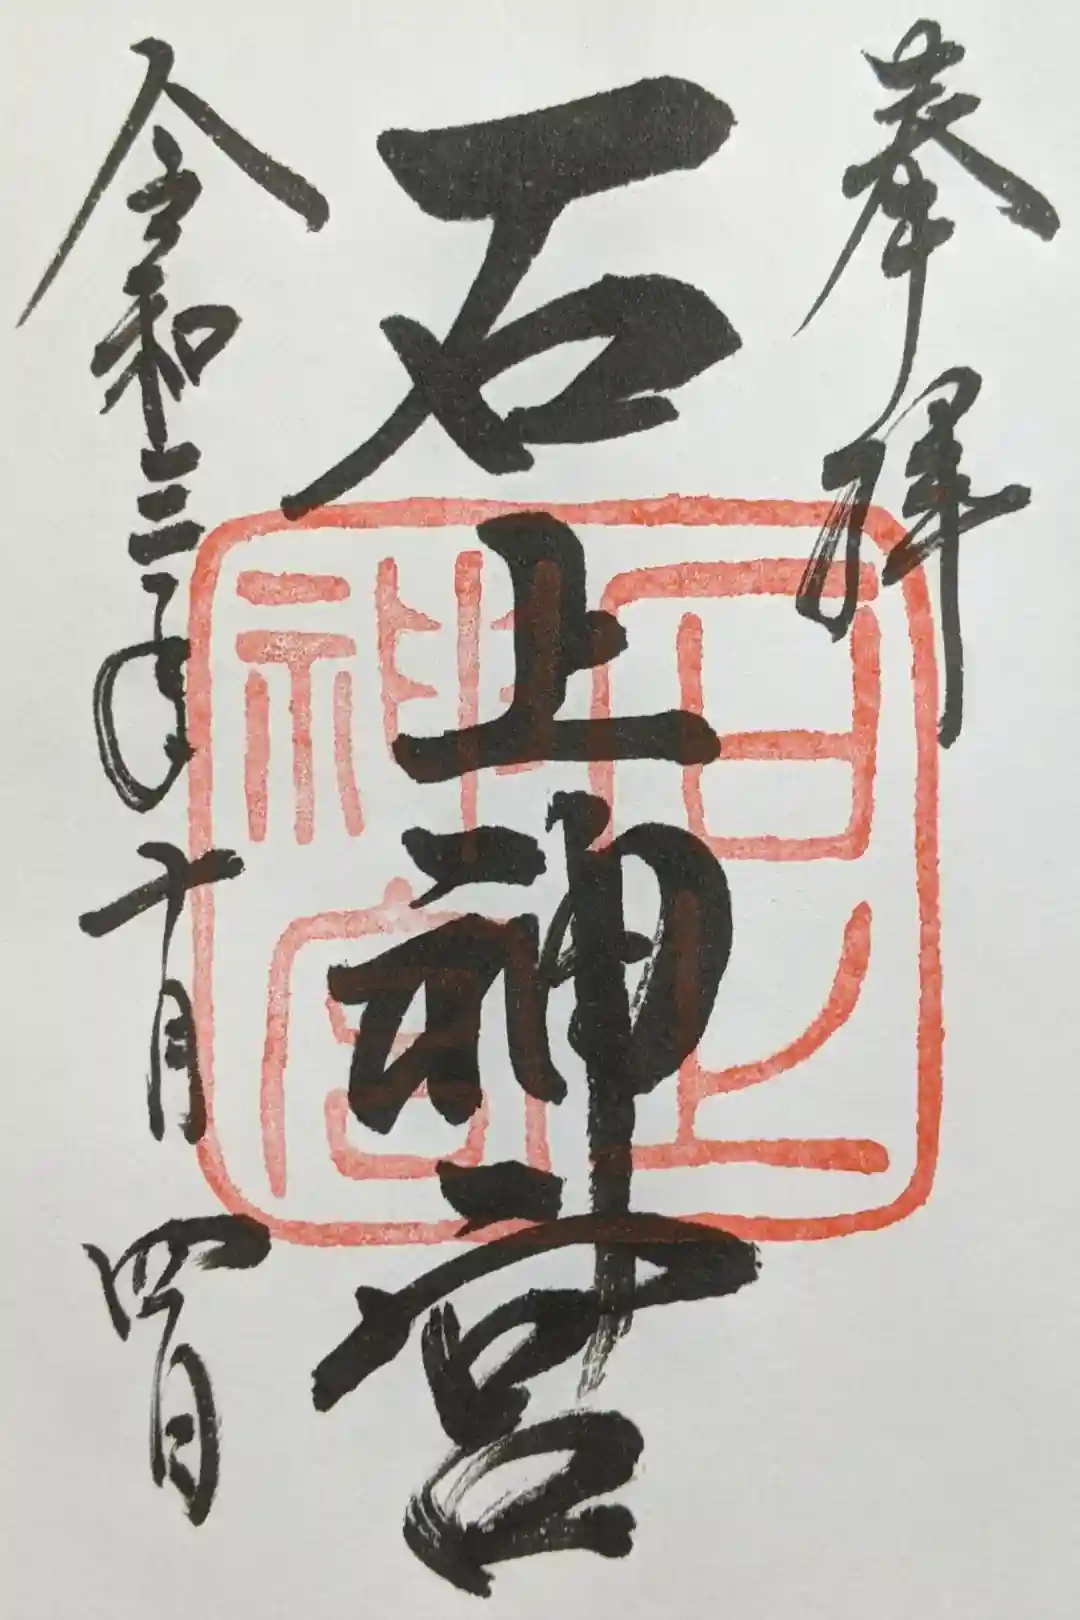 奉拝
石上神宮
石上神宮
令和三年十月四日